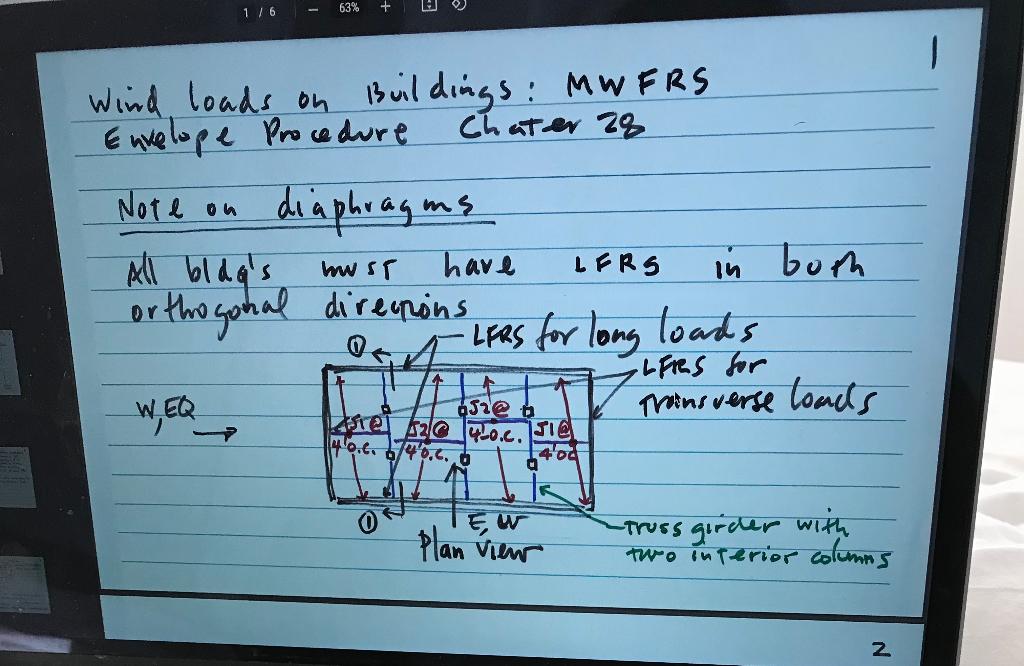 1 / 6 − 63% +
1
Wind loads on Buildings: MWFRS
Envelope Procedure Chater 28
Note on diaphragms
All bldg's must have LFRS in both
orthogonal directions
① LFRS for long loads
LFRS for
Transverse loads
W, EQ
J1@
4'o.c.
J2@
4'o.c.
J2@
4'-o.c.
J1@
4'oc
① E, W
Plan View
truss girder with
two interior columns
2